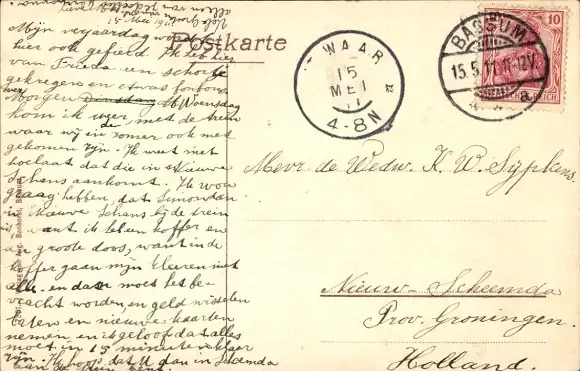 Vele groeten van
allen
15 Mei 1911
Postkarte
Mijn verjaardag wordt
hier ook gefierd. Ik heb hier
van Frieda een schortje
gekregen en etwas
Morgen Dinstag Woensdag
kom ik weer met de trein
waar wij de zomer ook met
gekomen zijn. Ik weet niet
hoelaat dat die in Nieuwe
Schans aankomt. Ik wou
graag hebben, dat Simon dan
in Nieuwe Schans bij de trein
is want ik heb een koffer en
een groote doos, want in de
koffer gaan mijn kleeren niet
alle. en dan moet het be-
vracht worden, en geld wisselen
laten en nieuwe kaarten
nemen, en ik geloof dat alles
moet in 15 minuten klaar
zijn. Ik hoop dat U dan in Scheemda
aan de trein bent
WAAR
15
MEI
11
4-8N
BASSUM
15.5.11.11-12V.
a
10
REICH
Mevr. de Wedw. K. W. Sypkens.
Nieuw-Scheemda
Prov. Groningen.
Holland.